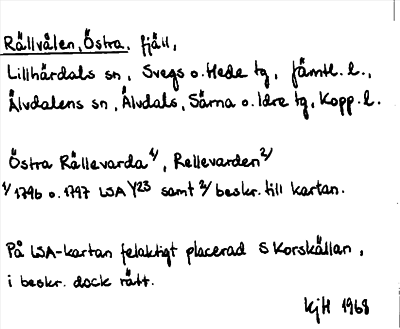 Rällvålen, Östra, fjäll,
Lillhärdals sn, Svegs o. Hede tg, Jämtl. l.,
Älvdalens sn, Älvdals, Särna o. Idre tg, Kopp. l.
Östra Rällevarda 1/, Rellevarden 2/
1/ 1796 o. 1797 LSA Y23 samt 2/ beskr. till kartan.
På LSA-kartan felaktigt placerad S Korskällan,
i beskr. dock rätt.
KjH 1968